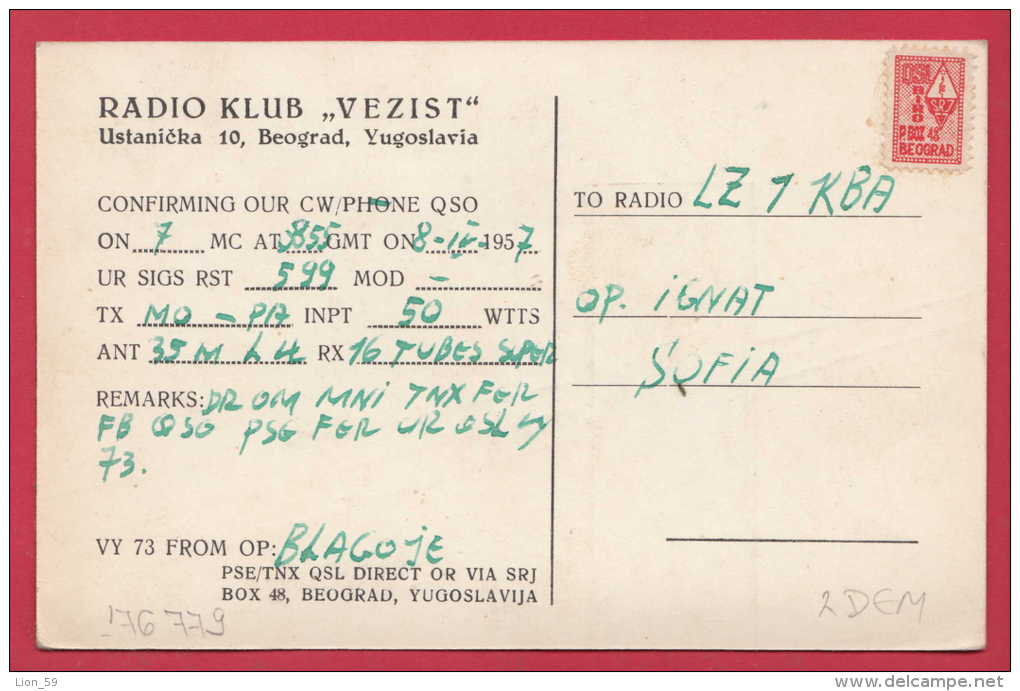 RADIO KLUB „VEZIST“
Ustanička 10, Beograd, Yugoslavia
CONFIRMING OUR CW/PHONE QSO
ON 7 MC AT 3855 GMT ON 8-IV-1957
UR SIGS RST 599 MOD -
TX MO - PA INPT 50 WTTS
ANT 35 M RX 16 TUBES SUPER
REMARKS: DR OM MNI TNX FER
FB QSO PSE FER UR QSL
73.
VY 73 FROM OP: BLAGOJE
PSE/TNX QSL DIRECT OR VIA SRJ
BOX 48, BEOGRAD, YUGOSLAVIJA
176 779
QSL
BIRO
SRJ
P. BOX 48
BEOGRAD
TO RADIO LZ 1 KBA
OP. IGNAT
SOFIA
2 DEM
Lion_59
www.delcampe.net